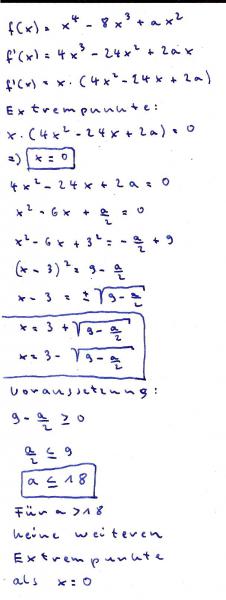 f(x) = x⁴ - 8x³ + ax²
f'(x) = 4x³ - 24x² + 2ax
f'(x) = x · (4x² - 24x + 2a)
Extrempunkte:
x · (4x² - 24x + 2a) = 0
=> x = 0
4x² - 24x + 2a = 0
x² - 6x + a/2 = 0
x² - 6x + 3² = - a/2 + 9
(x - 3)² = 9 - a/2
x - 3 = ± √(9 - a/2)
x = 3 + √(9 - a/2)
x = 3 - √(9 - a/2)
Voraussetzung:
9 - a/2 ≥ 0
a/2 ≤ 9
a ≤ 18
Für a > 18
keine weiteren
Extrempunkte
als x = 0